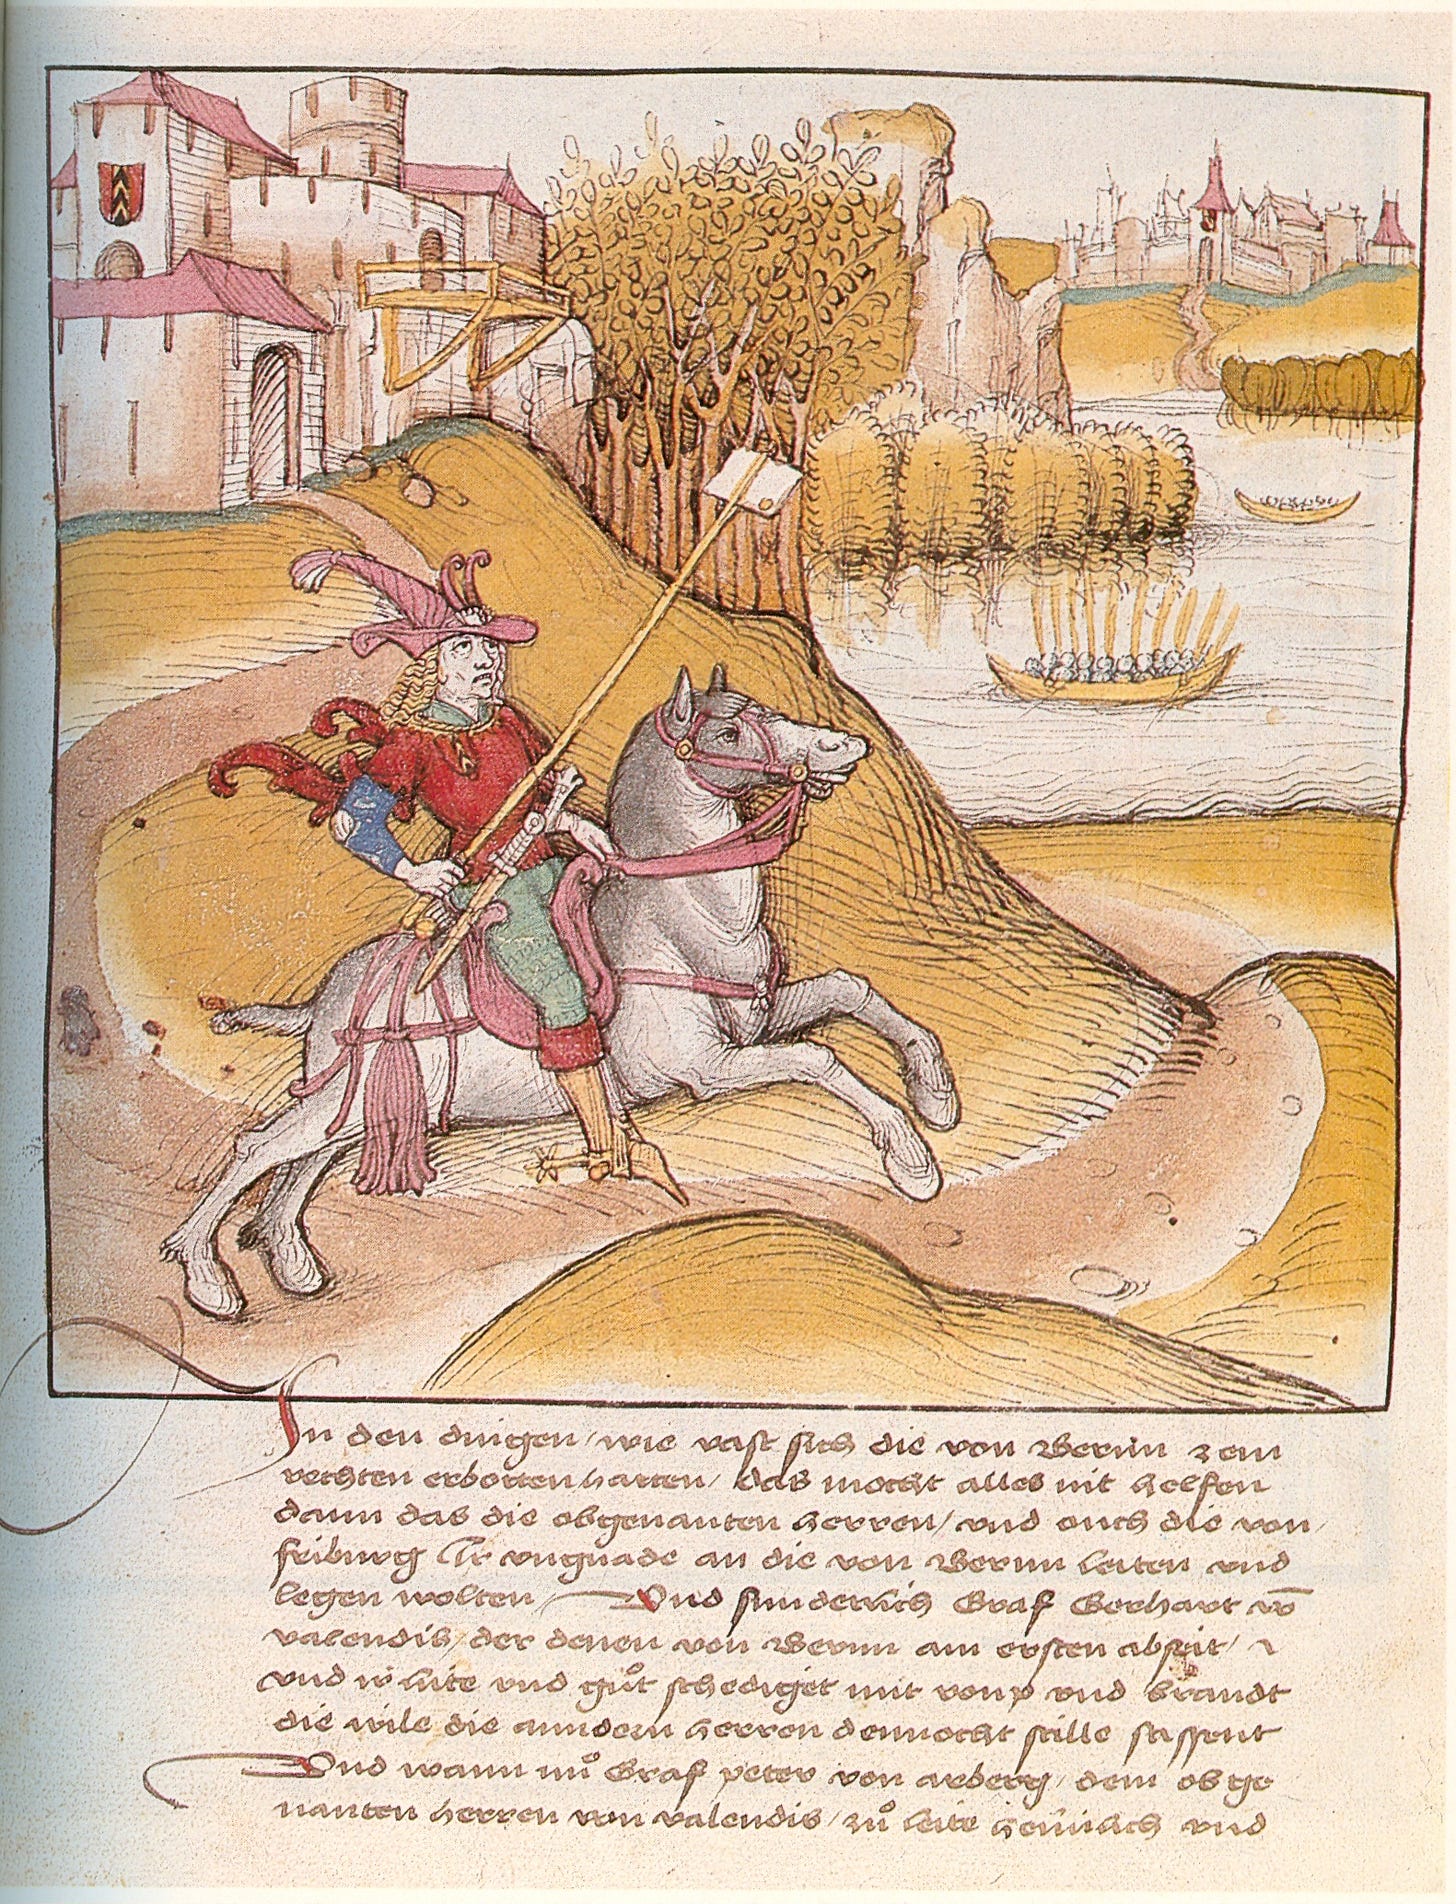 In den dingen / wie vast sich die von Bernn zem
rechten erbotten hatten / das mocht alles nit helfen
dann das die obgenanten herren / und ouch die von
friburg Ir ungnade an die von Bernn leiten und
legen wolten / Und sunderlich Graf Gerhart vō
valendis / der denen von Bernn am ersten abseit /
und ir lüte und gůt schediget mit roup und brandt
die wile die anndern herren dennocht stille sassent
Und wann nů Graf peter von arberg / dem obge
nanten herren von valendis / zů leite heimlich und